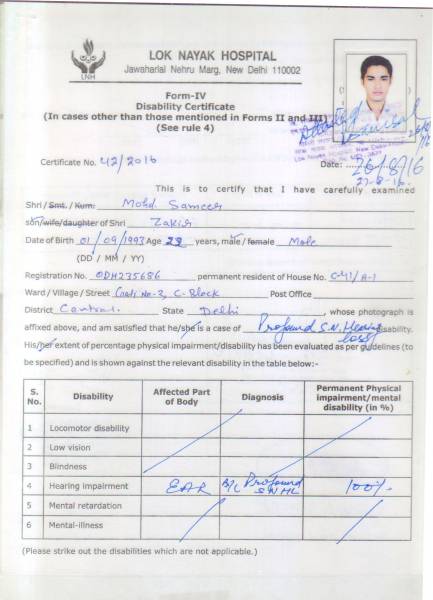 LNH
LOK NAYAK HOSPITAL
Jawaharlal Nehru Marg, New Delhi 110002
Form-IV
Disability Certificate
(In cases other than those mentioned in Forms II and III)
(See rule 4)
Certificate No. 42/2016 Date: 26/8/16
27-8-16
This is to certify that I have carefully examined
Shri / Smt. / Kum: Mohd Sameer
son/wife/daughter of Shri Zakir
Date of Birth 01/09/1993 Age 22 years, male/female Male
(DD / MM / YY)
Registration No. ODH235686 permanent resident of House No. C-41/A-1
Ward / Village / Street Gali No-2, C-Block Post Office
District Central. State Delhi, whose photograph is
affixed above, and am satisfied that he/she is a case of Profound S.N. Hearing loss disability.
His/her extent of percentage physical impairment/disability has been evaluated as per guidelines (to
be specified) and is shown against the relevant disability in the table below:-
S. No. Disability Affected Part of Body Diagnosis Permanent Physical impairment/mental disability (in %)
1 Locomotor disability
2 Low vision
3 Blindness
4 Hearing impairment EAR B/L Profound SNHL 100%
5 Mental retardation
6 Mental-illness
(Please strike out the disabilities which are not applicable.)